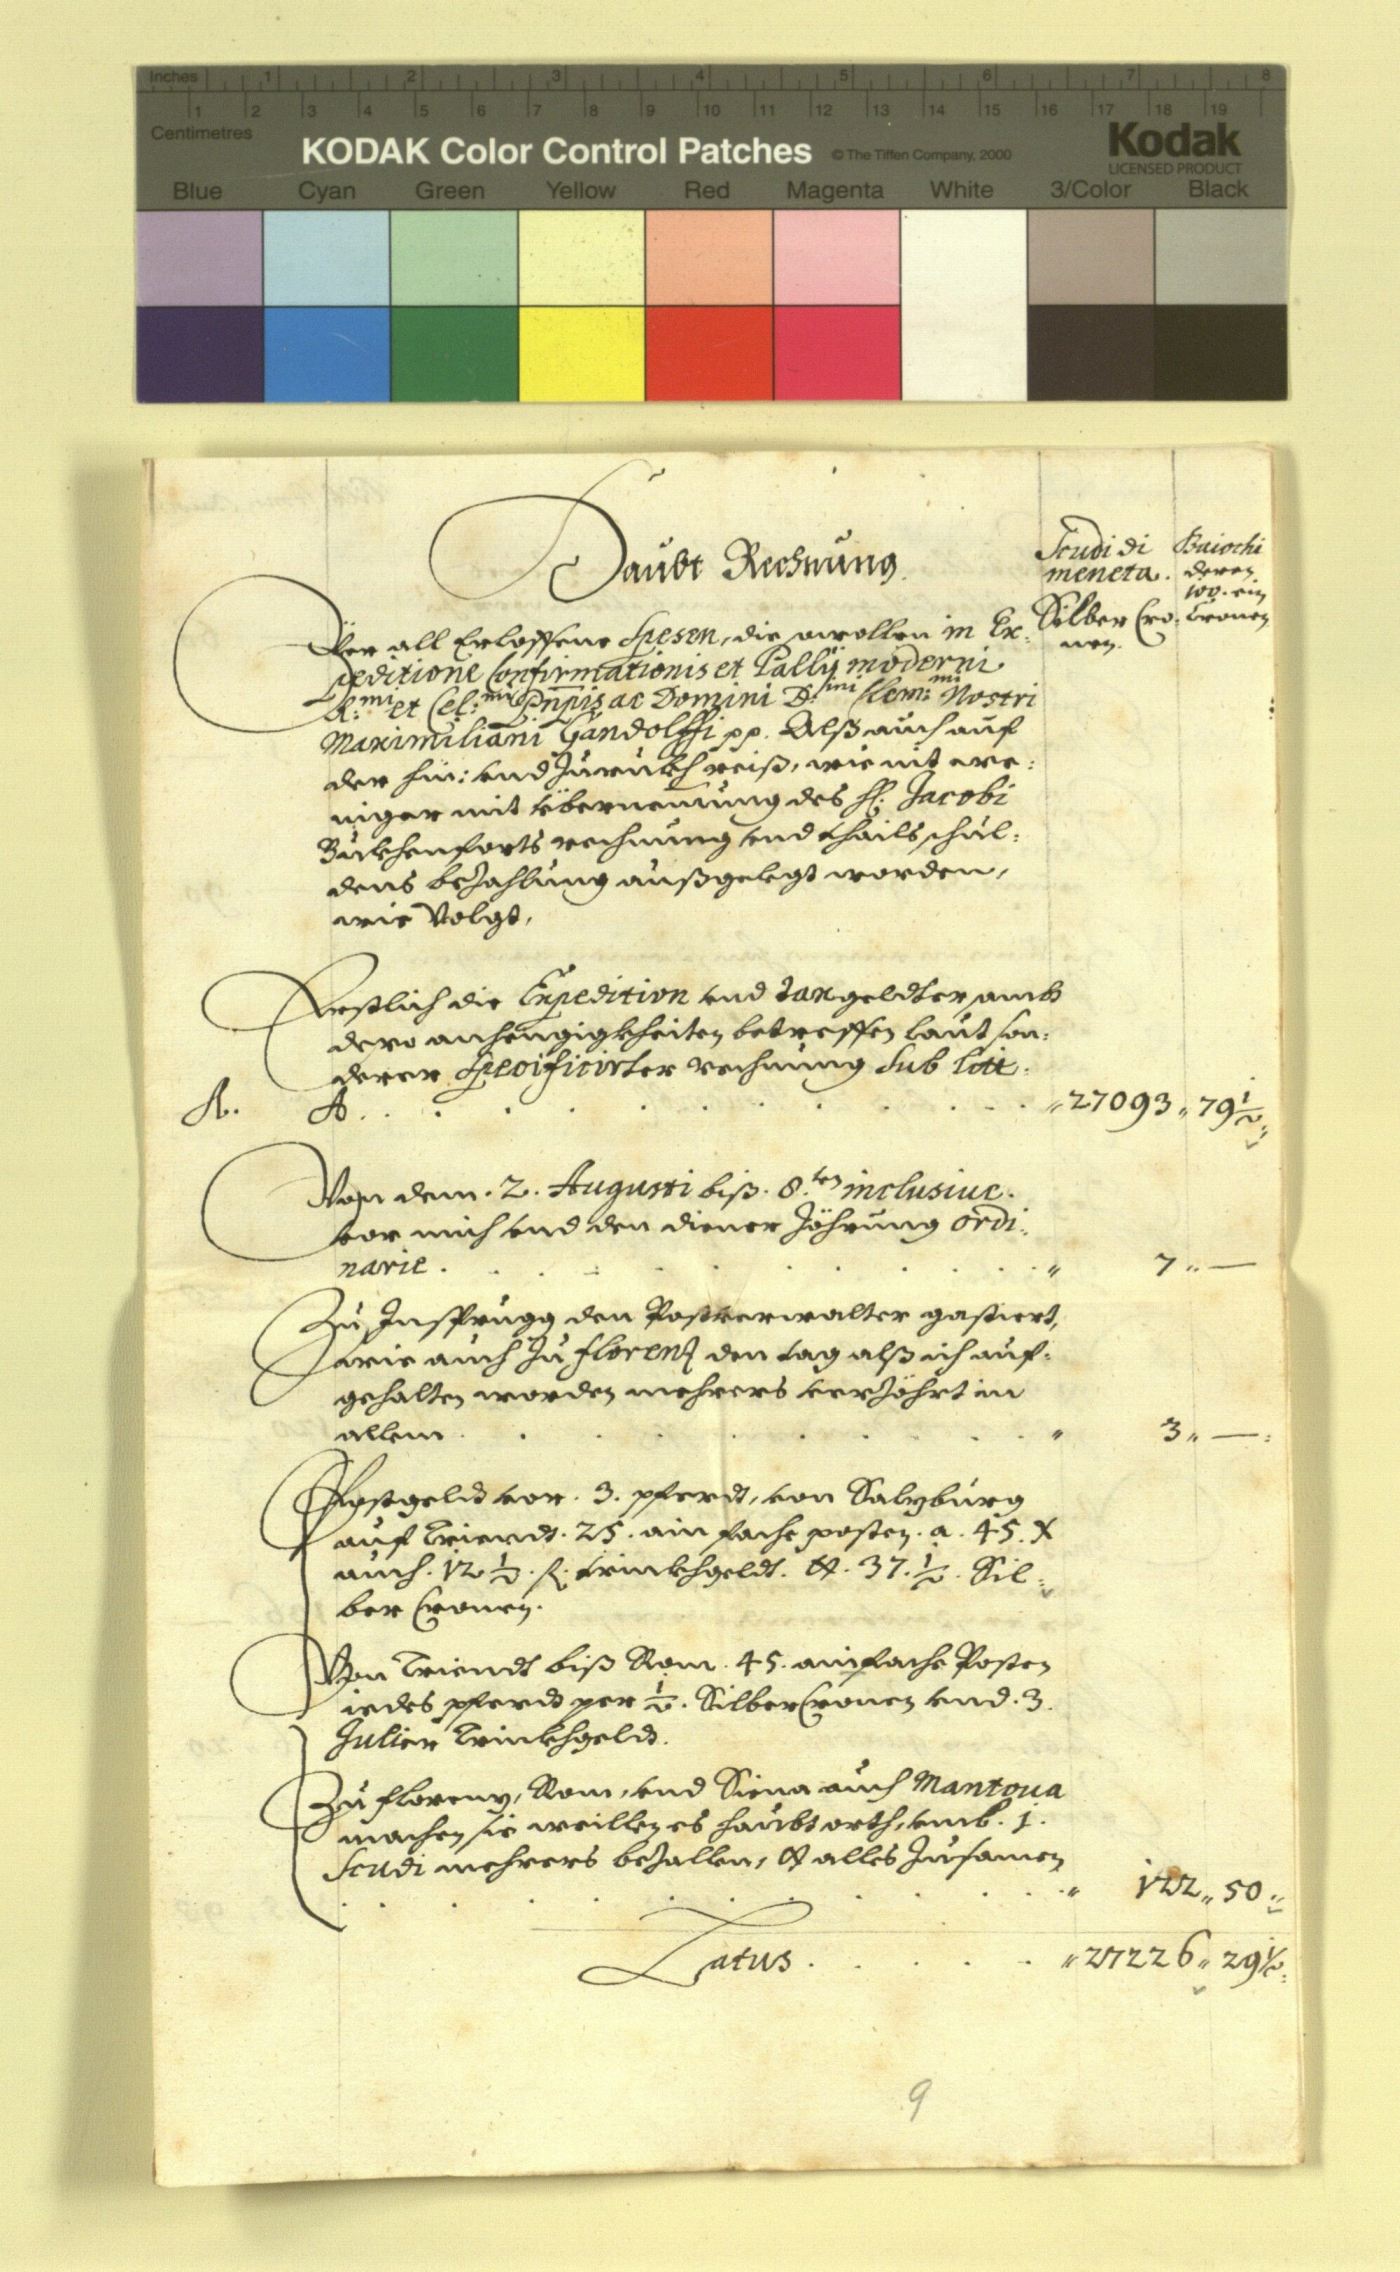 Inches 1 2 3 4 5 6 7 8
1 2 3 4 5 6 7 8 9 10 11 12 13 14 15 16 17 18 19
Centimetres
KODAK Color Control Patches © The Tiffen Company, 2000 Kodak
LICENSED PRODUCT
Blue Cyan Green Yellow Red Magenta White 3/Color Black
Haubt Rechnung.
Scudi di
meneta.
Silber Cro:
nen.
Baiochi
deren
100. ein
Cronen
Über all Erloffene Spesen, die wollen in Ex:
peditione Confirmationis et Pallij moderni
R:mi et Cel:mi Pnpis ac Domini D:ini Clem:mi Nostri
Maximiliani Gandolffi pp. Alß auch auf
der hin: vnd Zurukh reiß, wie nit we:
niger mit Übernemung des H: Jacobi
rechnung vnd thails schul:
dens beZahlung außgelegt worden,
wie Volgt,
Erstlich die Expedition vnd taxgeldter, samb
dero anhengigkheiten betreffen laut son:
derer Specificirter rechnung Sub Litt.
A. A. . . . . . . . . . . „ 27093 „ 79 1/2 „
Von dem . 2 . Augusti biß . 8.ten inclusiue.
vor mich vnd den diener Zöhrung ordi:
narie . . . . . . . . . . „ 7 „ —
Zu Insprugg den Postverwalter gastiert,
wie auch Zu florenz den tag alß ich auf:
gehalten worden mehrers verZöhrt in
allem . . . . . . . . . . „ 3 „ —
Postgeldt vor . 3 . pferdt, von Salzburg
auf Triendt . 25 . ain fache posten . a . 45 . X
auch . 12 1/2 . f. trinkhgeldt. 37. 1/2 . Sil:
ber Cronen.
Von Triendt biß Rom . 45 . ainfache Posten
iedes pferdt per 1/2 . Silber Cronen vnd . 3 .
Julier Trinkhgeldt.
Zu florenz, Rom, vnd Siena auch Mantoua
machen sie weillen es haubt orth, vmb . 1 .
Scudi mehrers beZallen, alles Zusamen
. . . . . . . . . . „ 122 „ 50 „
Latus . . . . . „ 27226 „ 29 1/2
9